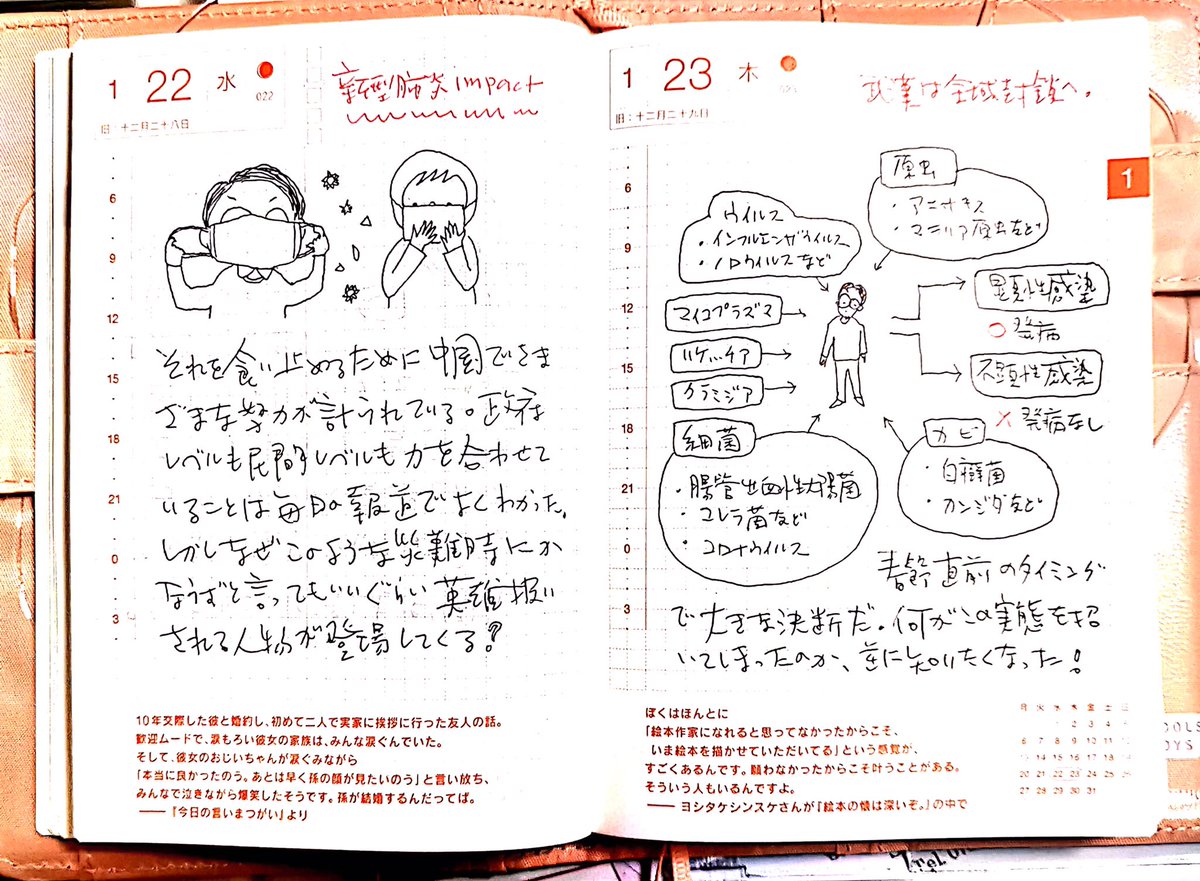 1 22 水
022
旧：十二月二十八日
新型肺炎 impact
6
9
12
15
18
21
0
3
それを食い止めるために中国でさま
ざまな努力が計られている。政府
レベルも民間レベルも力を合わせて
いることは毎日の報道でよくわかった。
しかしなぜこのような災難時にか
ならずと言ってもいいぐらい英雄扱い
される人物が登場してくる？
10年交際した彼と婚約し、初めて二人で実家に挨拶に行った友人の話。
歓迎ムードで、涙もろい彼女の家族は、みんな涙ぐんでいた。
そして、彼女のおじいちゃんが涙ぐみながら
「本当に良かったのう。あとは早く孫の顔が見たいのう」と言い放ち、
みんなで泣きながら爆笑したそうです。孫が結婚するんだってば。
――『今日の言いまつがい』より
1 23 木
旧：十二月二十九日
武漢は全域封鎖へ。
1
6
9
12
15
18
21
0
3
原虫
・アニサキス
・マラリア原虫など
ウイルス
・インフルエンザウイルス
・ノロウイルスなど
マイコプラズマ
リケッチア
クラミジア
細菌
・腸管出血性大腸菌
・コレラ菌など
・コロナウイルス
顕性感染
○ 発病
不顕性感染
× 発病なし
カビ
・白癬菌
・カンジダなど
春節直前のタイミング
で大きな決断だ。何がこの実態を招
いてしまったのか、逆に知りたくなった！
ぼくはほんとに
「絵本作家になれると思ってなかったからこそ、
いま絵本を描かせていただいてる」という感覚が、
すごくあるんです。願わなかったからこそ叶うことがある。
そういう人もいるんですよ。
――ヨシタケシンスケさんが『絵本の懐は深いぞ。』の中で
月 火 水 木 金 土 日
1 2 3 4 5
6 7 8 9 10 11 12
13 14 15 16 17 18 19
20 21 22 23 24 25 26
27 28 29 30 31